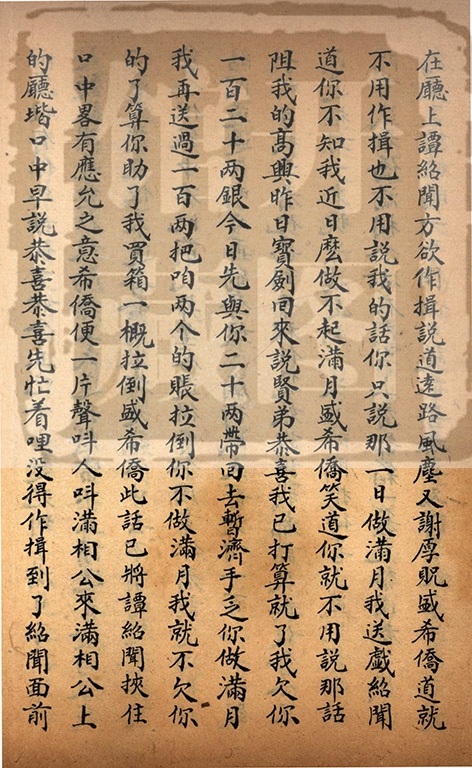 在廳上譚紹聞方欲作揖說道遠路風塵又謝厚貺盛希僑道就
不用作揖也不用說我的話你只說那一日做滿月我送戲紹聞
道你不知我近日麽做不起滿月盛希僑笑道你就不用說那話
阻我的高興昨日寶劍回來說賢弟恭喜我已打算就了我欠你
一百二十两銀今日先與你二十两帶回去暫濟手乏你做滿月
我再送過一百两把咱两个的賬拉倒你不做滿月我就不欠你
的了算你助了我買箱一概拉倒盛希僑此話已將譚紹聞挾住
口中畧有應允之意希僑便一片聲呌人呌滿相公來滿相公上
的廳堦口中早說恭喜恭喜先忙着哩没得作揖到了紹聞面前